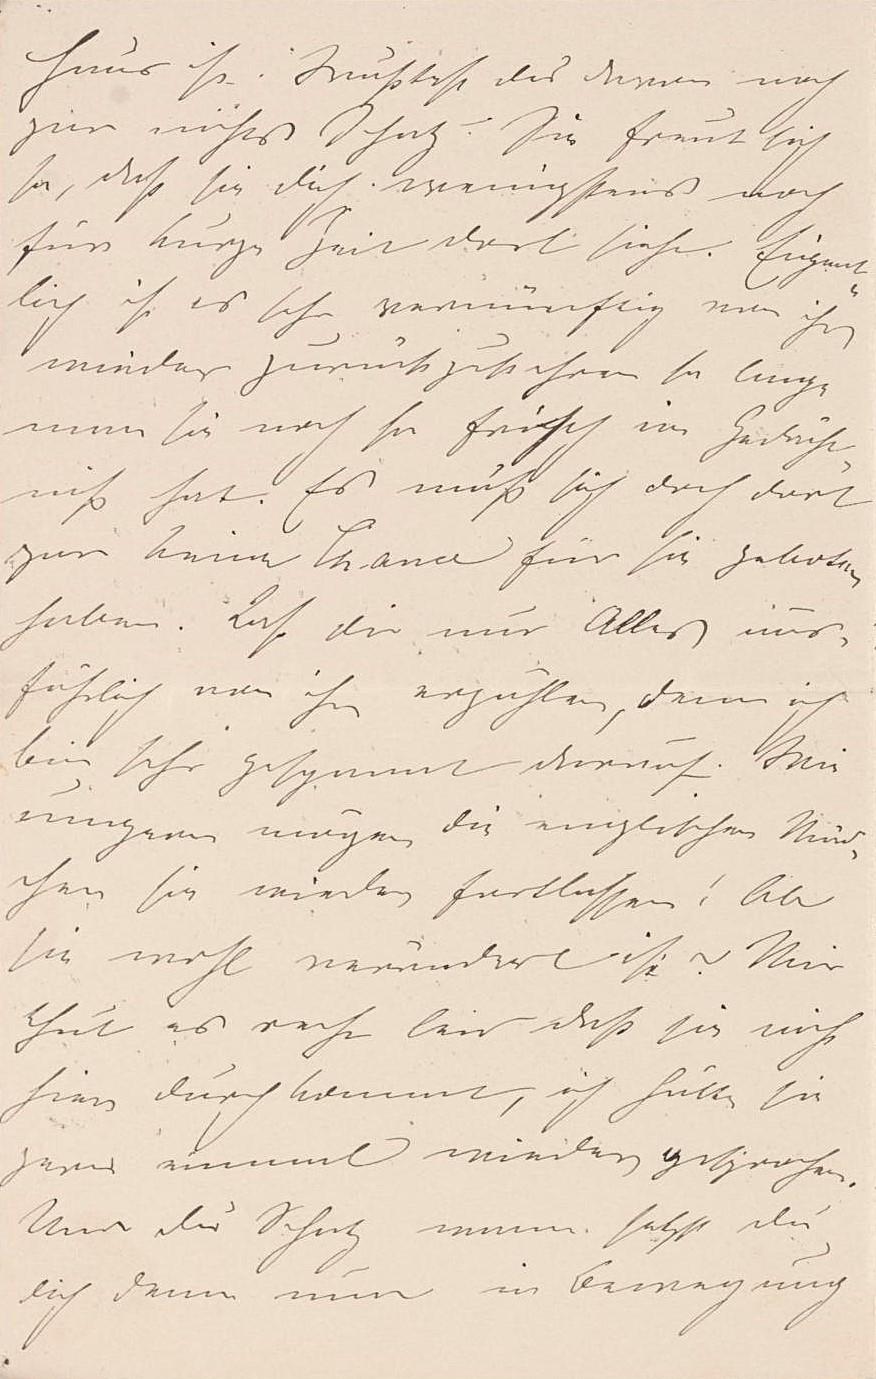 Haus ist. Wußtest du davon noch
gar nichts Schatz? Sie freut sich
so, daß sie dich wenigstens noch
für kurze Zeit dort sieht. Eigent„
lich ist es sehr vernünftig von ihr
wieder zurückzukehren so lange
man sie noch so frisch im Gedächt„
niß hat. Es muß sich doch dort
gar keine Chance für sie geboten
haben. Laß dir nur Alles aus„
führlich von ihr erzählen, denn ich
bin sehr gespannt darauf. Wie
ungern mögen die englischen Mäd„
chen sie wieder fortlassen! Ob
sie wohl verändert ist? Mir
thut es recht leid daß sie nicht
hier durchkommt, ich hätte sie
gern einmal wieder gesprochen.
Und du Schatz wann setzst du
dich denn nun in Bewegung